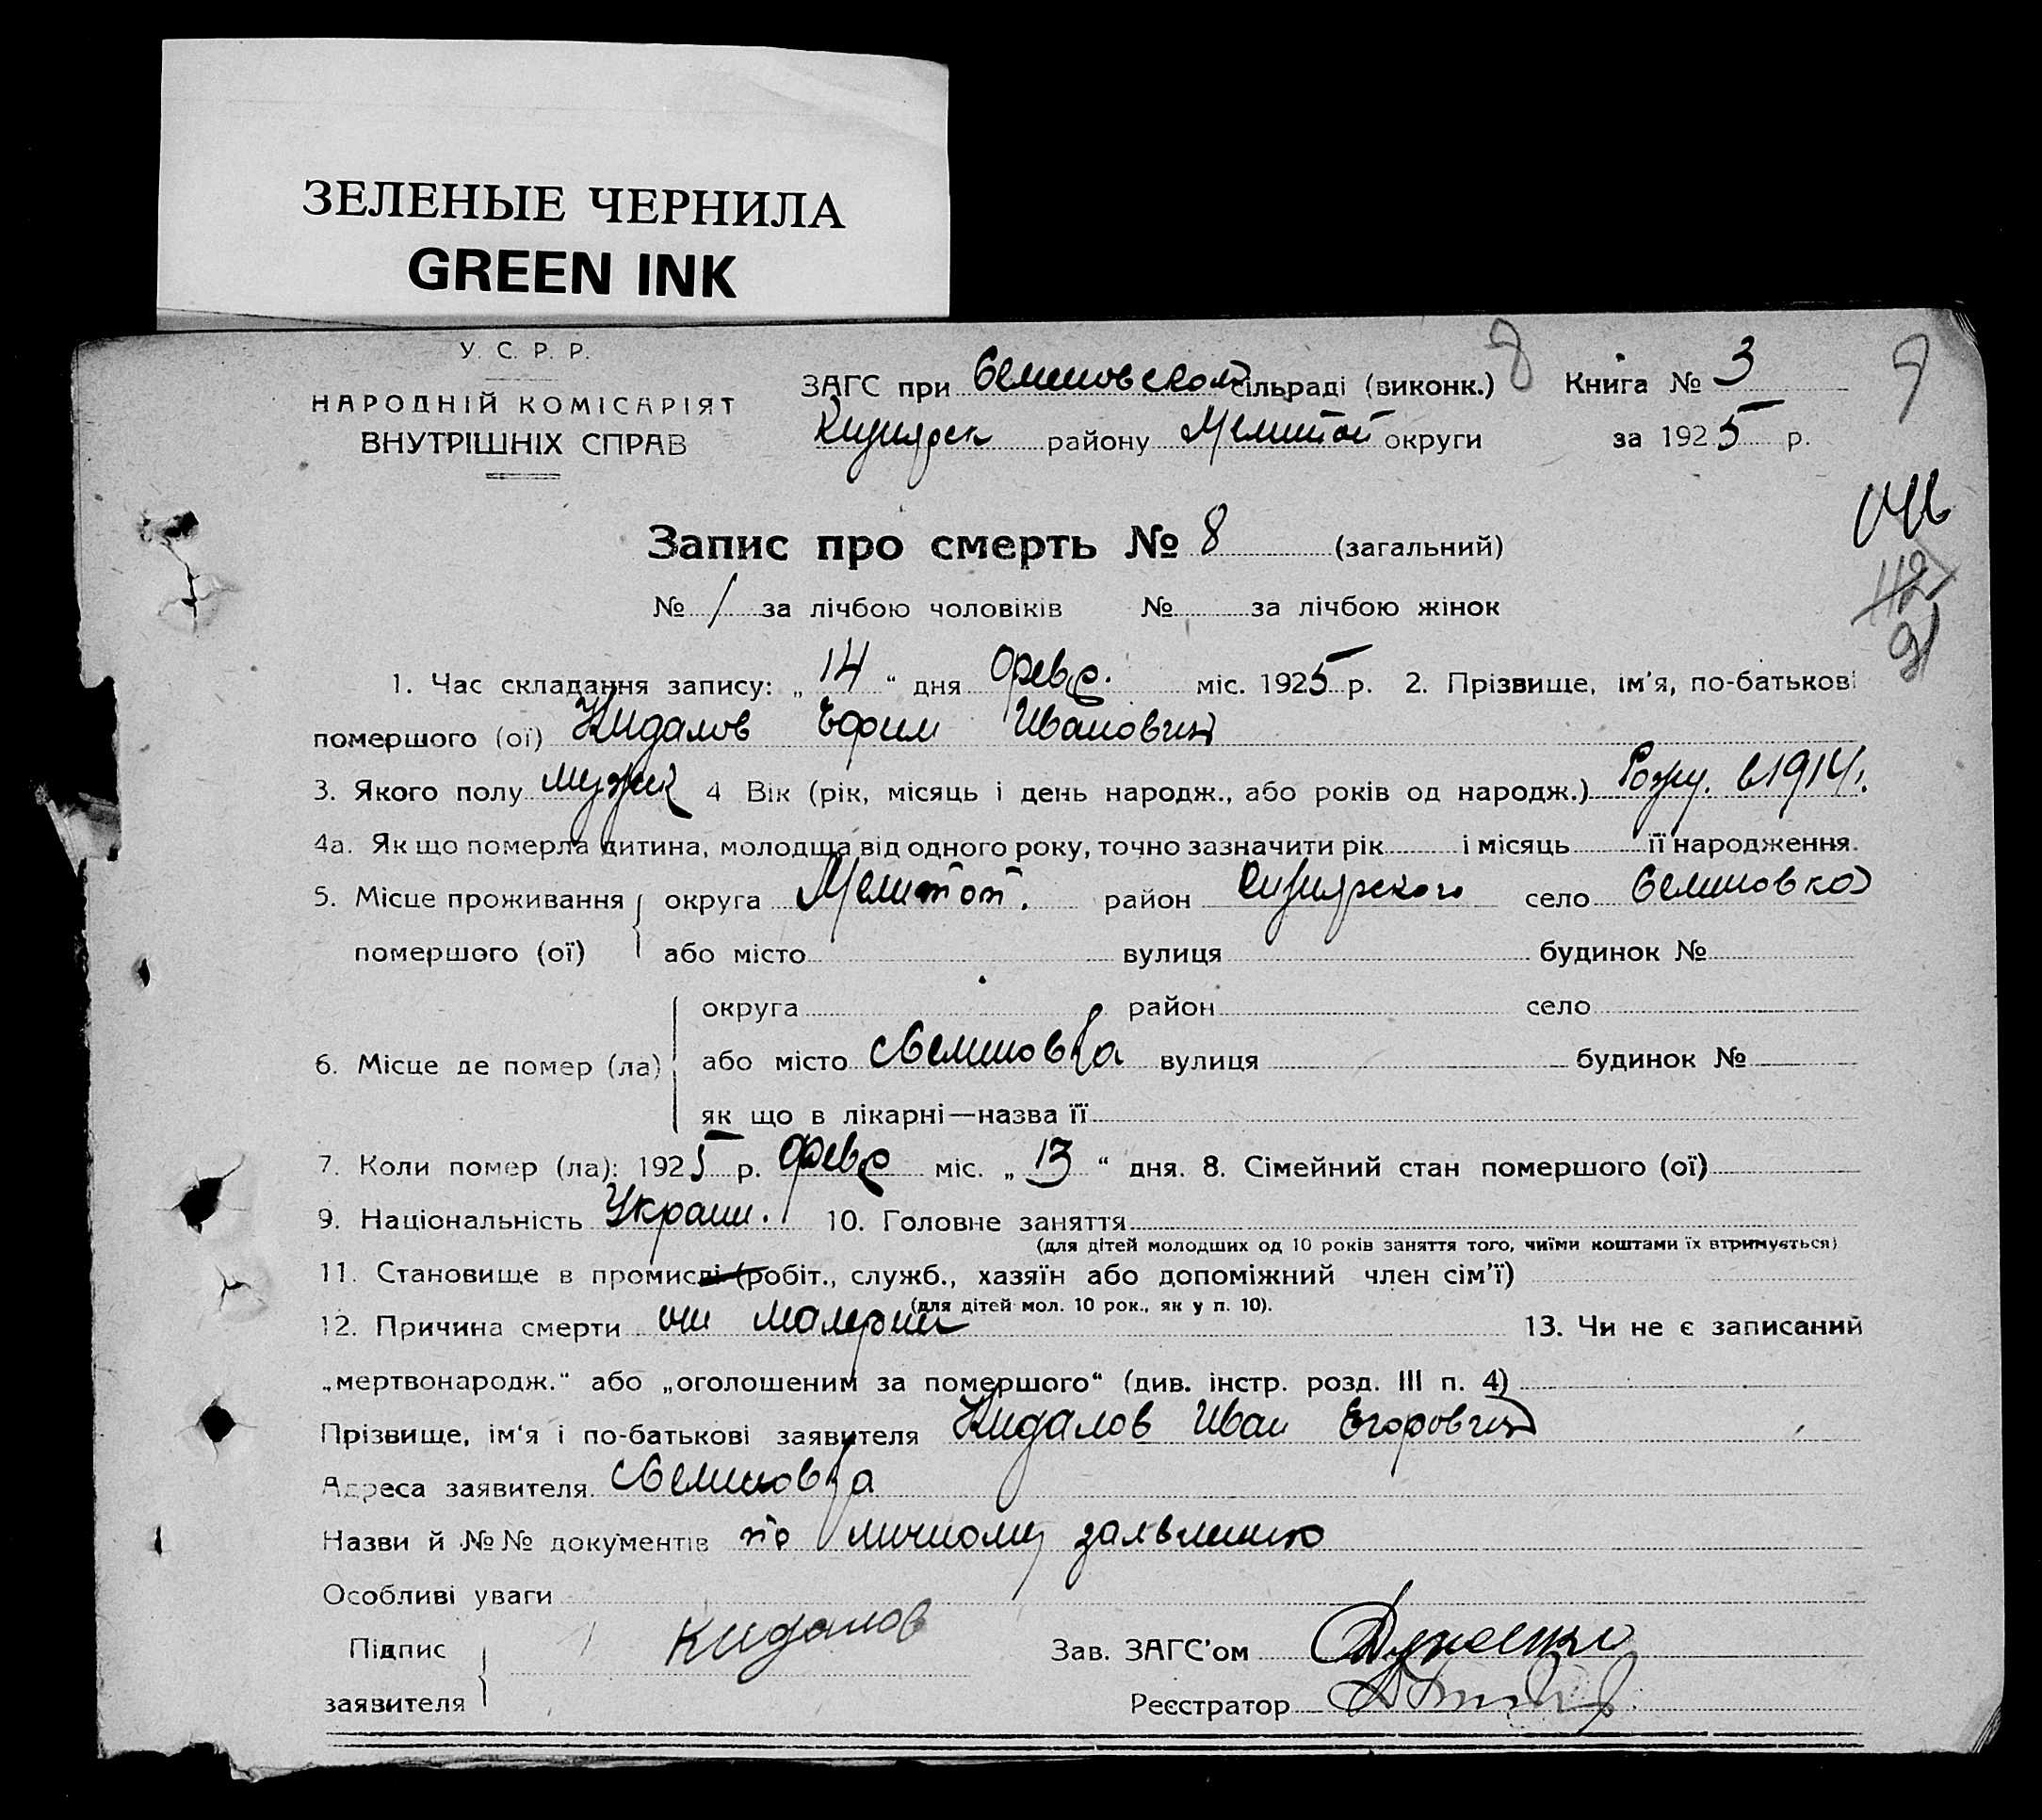 ЗЕЛЕНЫЕ ЧЕРНИЛА
GREEN INK
У. С. Р. Р.
НАРОДНІЙ КОМІСАРІЯТ
ВНУТРІШНІХ СПРАВ
ЗАГС при Семеновском сільраді (виконк.) 8 Книга № 3
району Мелитоп округи за 1925 р.
Запис про смерть № 8 (загальний)
№ 1 за лічбою чоловіків № за лічбою жінок
1. Час складання запису: „ 14 “ дня февр. міс. 1925 р. 2. Прізвище, ім'я, по-батькові
помершого (ої) Кидалов Ефим Иванович
3. Якого полу мужск 4 Вік (рік, місяць і день народж., або років од народж.) Рожд. в 1914.
4а. Як що померла дитина, молодша від одного року, точно зазначити рік і місяць її народження.
5. Місце проживання округа Мелитоп. район село Семеновка
помершого (ої) або місто вулиця будинок №
округа район село
6. Місце де помер (ла) або місто Семеновка вулиця будинок №
як що в лікарні—назва її
7. Коли помер (ла): 1925 р. февр міс. „ 13 “ дня. 8. Сімейний стан помершого (ої)
9. Національність Украин. 10. Головне заняття
(для дітей молодших од 10 років заняття того, чиїми коштами їх втримується)
11. Становище в промислі (робіт., служб., хазяїн або допоміжний член сім'ї)
(для дітей мол. 10 рок., як у п. 10).
12. Причина смерти от малярии 13. Чи не є записаний
„мертвонародж.“ або „оголошеним за помершого“ (див. інстр. розд. III п. 4)
Прізвище, ім'я і по-батькові заявителя Кидалов Иван Егорович
Адреса заявителя. Семеновка
Назви й №№ документів по личному заявлению
Особливі уваги
Підпис Кидалов Зав. ЗАГС'ом
заявителя Реєстратор